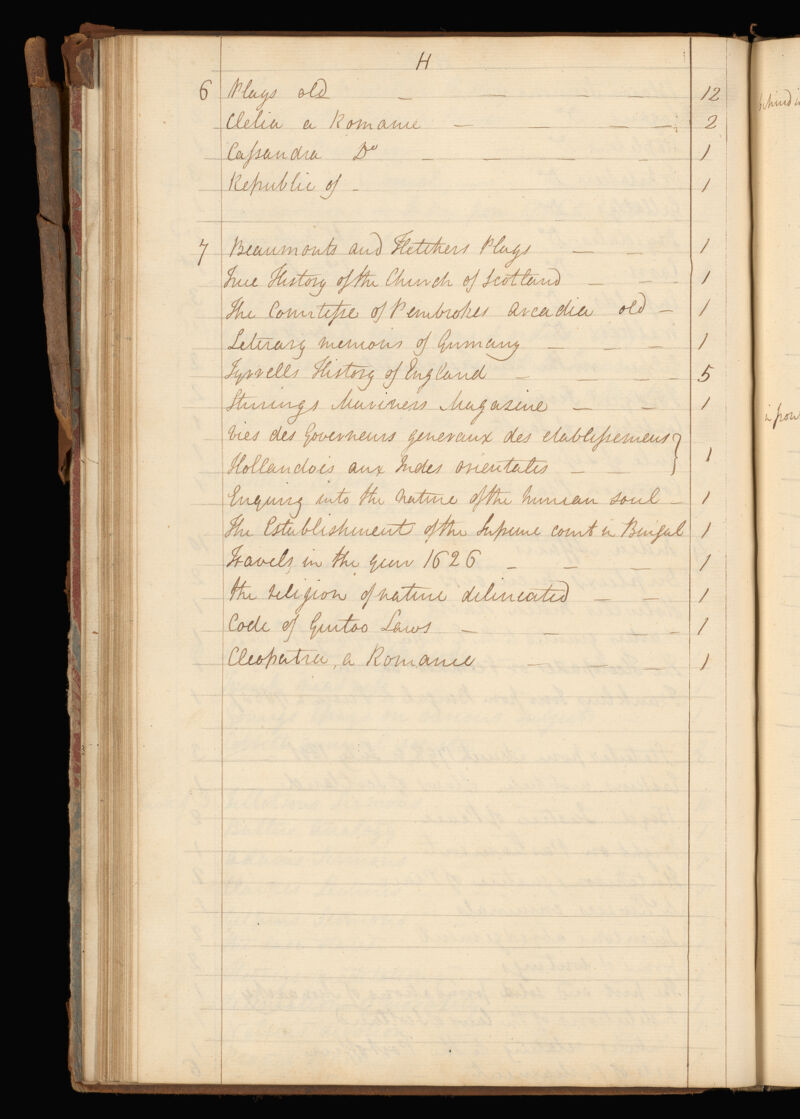 H
6 Plays old — — — — 12
Clelia a Romance — — — — 2
Cassandra Do — — — — 1
Republic of – 1
7 Beaumonts and Fletchers Plays — — 1
True History of the Church of Scotland — — 1
The Countesse of Pembrokes Arcadia old — 1
Literary memoirs of Germany — — — 1
Tyrrells History of England — — — — 5
Sturmgs Mariners Magazine — — 1
Vies des Governeurs generaux des etablissemens }
Hollandois aux Indes orientales — — — } 1
Enquiry into the nature of the human soul — 1
The Establishment of the Supreme court in Bengal 1
Travels in the year 1626 — — — 1
the religion of nature delineated — — 1
Code of Gentoo Laws — — — 1
Cleopatra, a Romance — — — 1
behind
in front